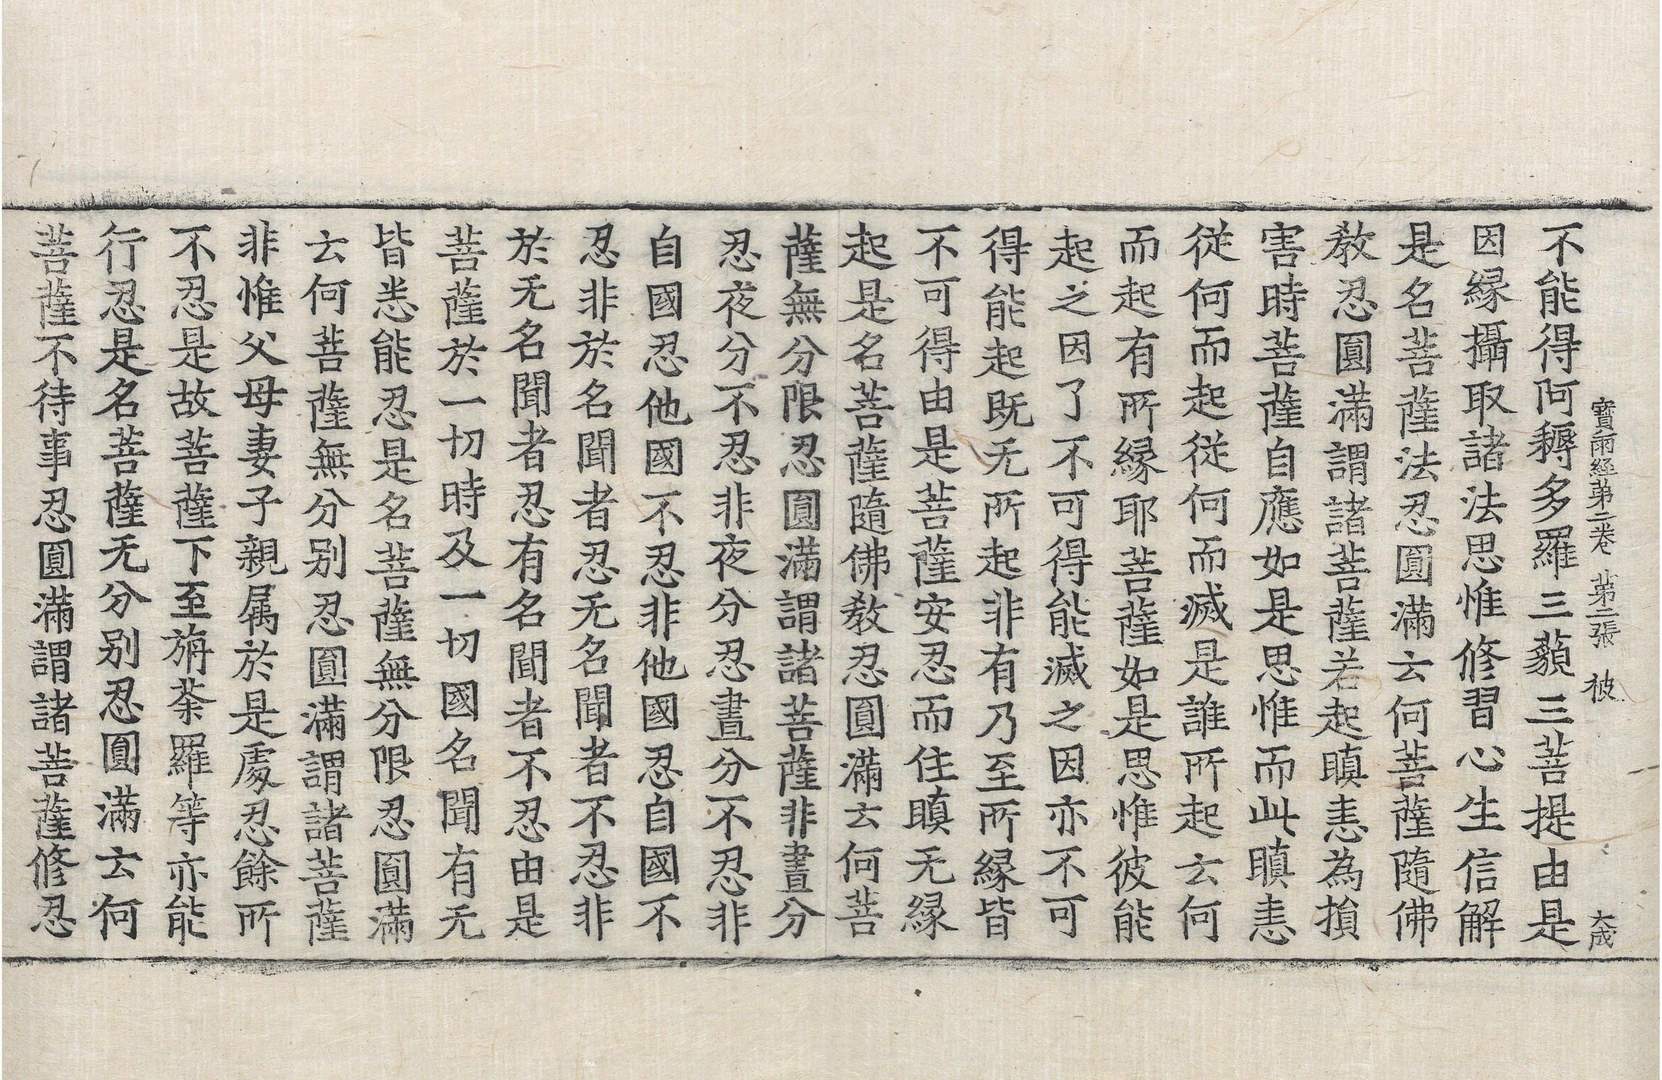 寶雨經第二卷 第二張 彼 大成
不能得阿耨多羅三藐三菩提由是
因緣攝取諸法思惟修習心生信解
是名菩薩法忍圓滿云何菩薩隨佛
教忍圓滿謂諸菩薩若起瞋恚為損
害時菩薩自應如是思惟而此瞋恚
從何而起從何而滅是誰所起云何
而起有所緣耶菩薩如是思惟彼能
起之因了不可得能滅之因亦不可
得能起既无所起非有乃至所緣皆
不可得由是菩薩安忍而住瞋无緣
起是名菩薩隨佛教忍圓滿云何菩
薩無分限忍圓滿謂諸菩薩非晝分
忍夜分不忍非夜分忍晝分不忍非
自國忍他國不忍非他國忍自國不
忍非於名聞者忍无名聞者不忍非
於无名聞者忍有名聞者不忍由是
菩薩於一切時及一切國名聞有无
皆悉能忍是名菩薩無分限忍圓滿
云何菩薩無分别忍圓滿謂諸菩薩
非惟父母妻子親屬於是處忍餘所
不忍是故菩薩下至旃荼羅等亦能
行忍是名菩薩无分别忍圓滿云何
菩薩不待事忍圓滿謂諸菩薩修忍